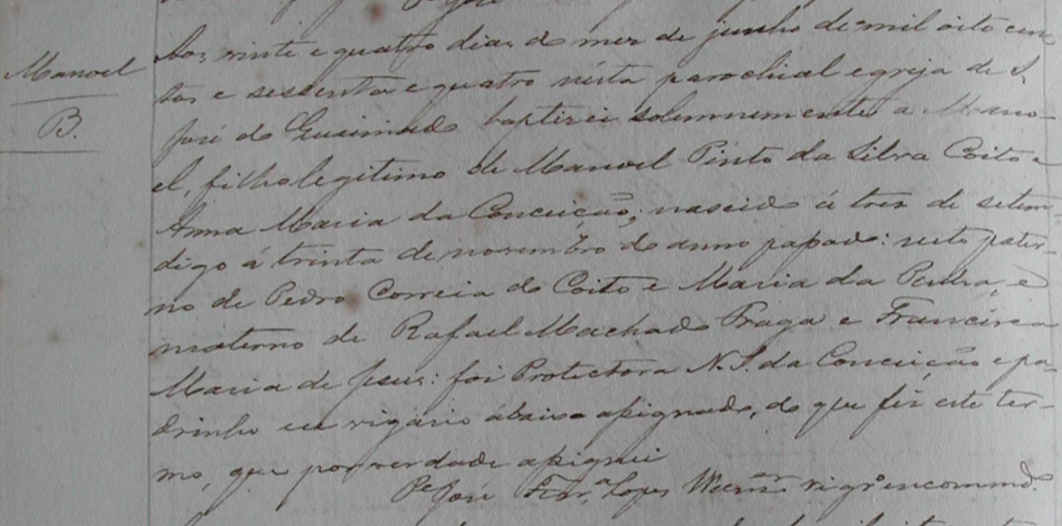 Manoel
B.
Aos vinte e quatro dias do mez de junho de mil oito cen
tos e sessenta e quatro nésta parochial egreja de S.
José do baptizei solemnemente a Mano-
el, filho legitimo de Manoel Pinto da Silva Coito e
Anna Maria da Conceição; nascido á tres de setem
digo á trinta de novembro do anno passado: neto pater-
no de Pedro Correia do Coito e Maria da Penha, e
materno de Rafael Machado Fraga e Francisca
Maria de Jesus: foi Protectora N. S. da Conceição e pa-
drinho eu vigario ábaixo assignado, do que fiz este ter-
mo, que por verdade assignei
Pe José Lopes vigro encommdo.